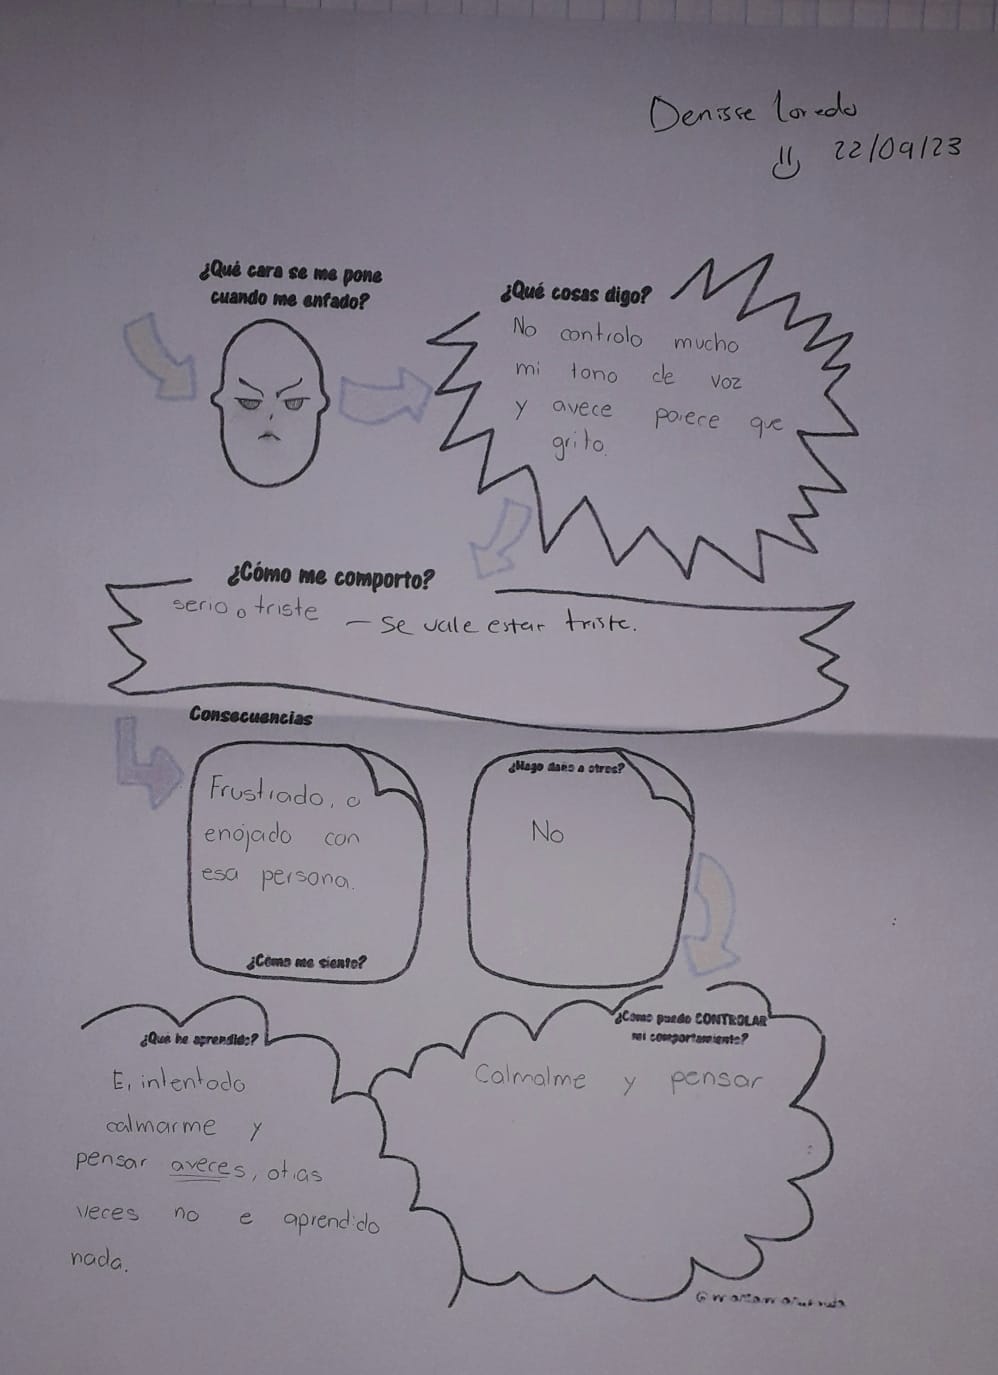 Denisse Loredo
22/09/23
¿Qué cara se me pone
cuando me enfado?
¿Qué cosas digo?
No controlo mucho
mi tono de voz
y avece parece que
grito.
¿Cómo me comporto?
serio o triste
– Se vale estar triste.
Consecuencias
Frustrado, o
enojado con
esa persona.
¿Cómo me siento?
¿Hago daño a otros?
No
¿Qué he aprendido?
E, intentado
calmarme y
pensar aveces, otras
veces no e aprendido
nada.
¿Cómo puedo CONTROLAR
mi comportamiento?
Calmalme y pensar